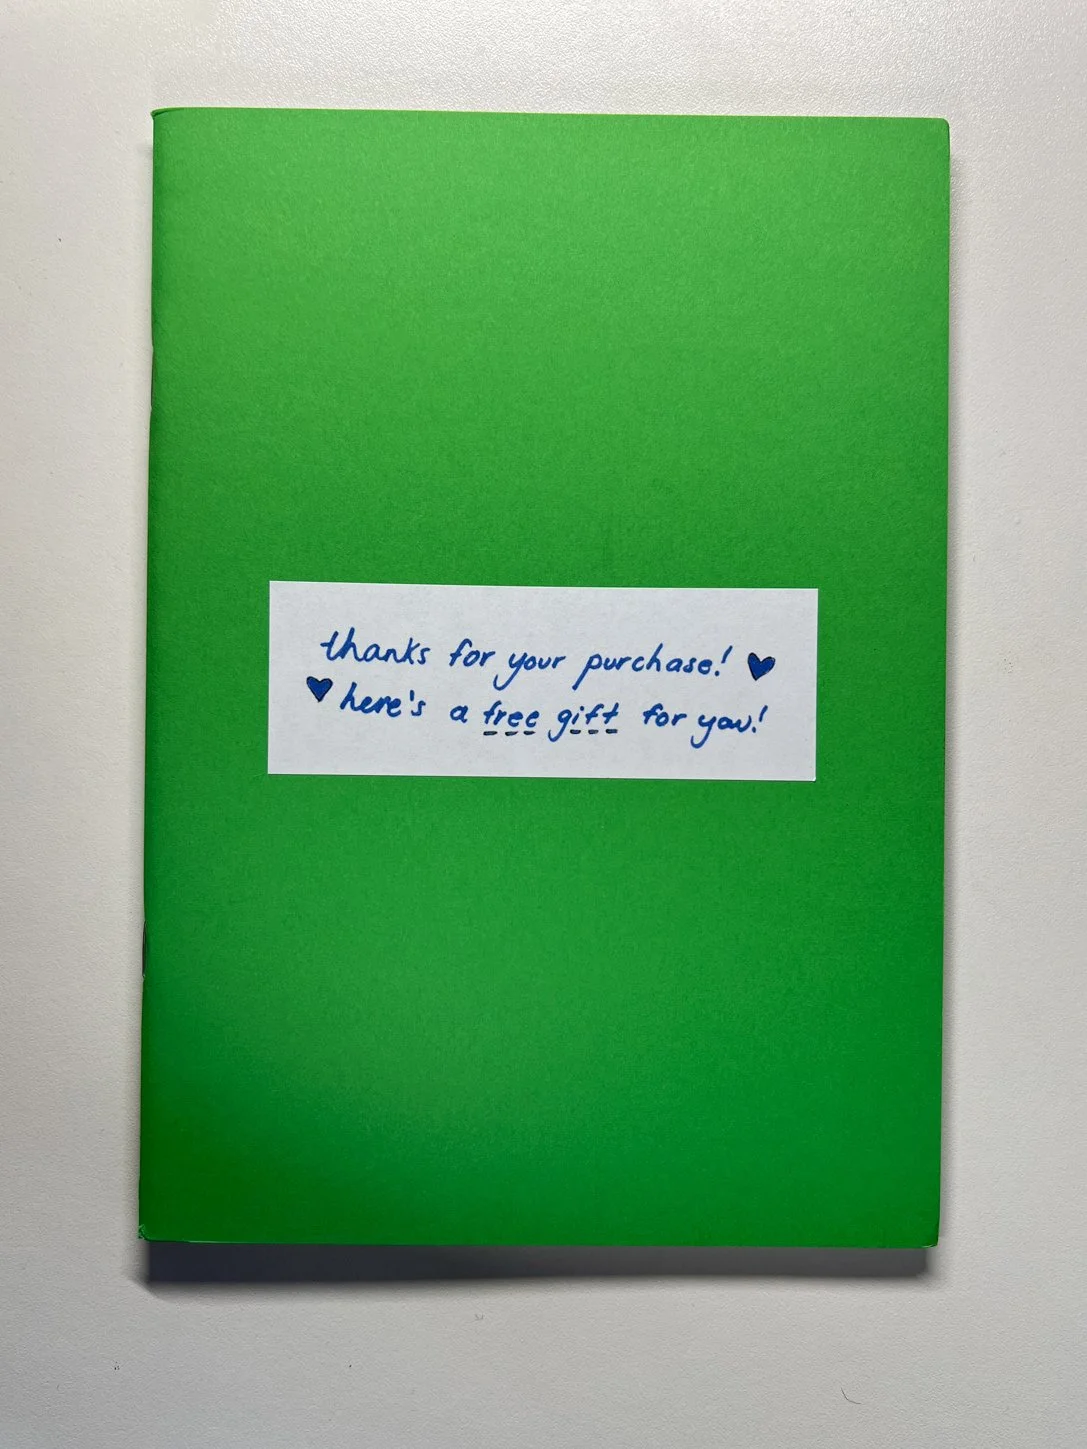 thanks for your purchase! ♥
♥ here's a free gift for you!